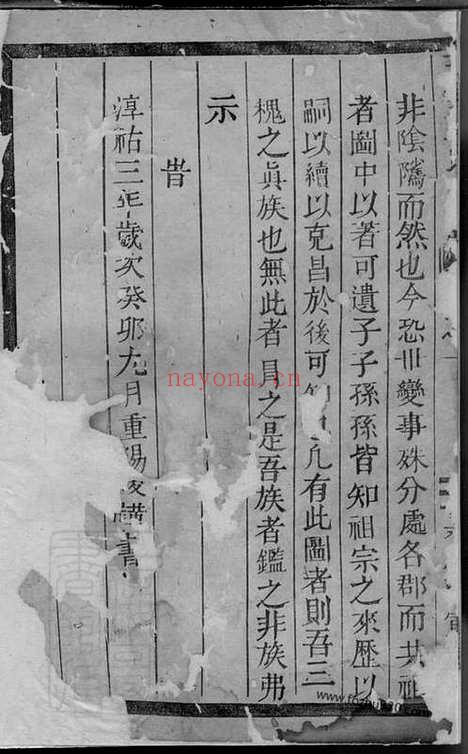 非陰隲而然也今恐世變事殊分處各郡而共祖
者圖中以著可遺子子孫孫皆知祖宗之來歷以
嗣以續以克昌於後可知凡有此圖者則吾三
槐之眞族也無此者冒之是吾族者鑑之非族弗
示
昔
淳祐三年歲次癸卯九月重陽後 書
nayona.cn